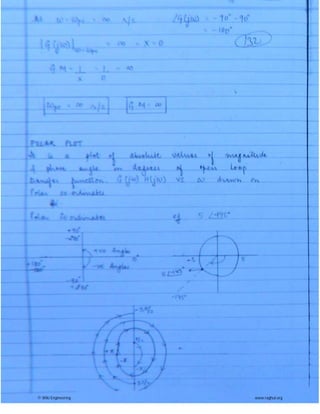 At ω = ωpc = ∞ r/s ∠G(jω) = -90° -90°
= -180°
132
|G(jω)|ω=ωpc = ∞ = X = 0
G.M = 1/X = 1/0 = ∞
ωpc = ∞ r/s G.M = ∞
POLAR PLOT
It is a plot of absolute values of magnitude
& phase angle in degrees of open loop
transfer function G(jω) H(jω) vs ω drawn on
Polar co-ordinates
Polar Co-ordinates eg 5∠-145°
+90°
-270°
+ve Angles
-ve Angles
0°
+180°
-180°
-90°
+270°
5
5∠-145°
-145°
© Wiki Engineering www.raghul.org